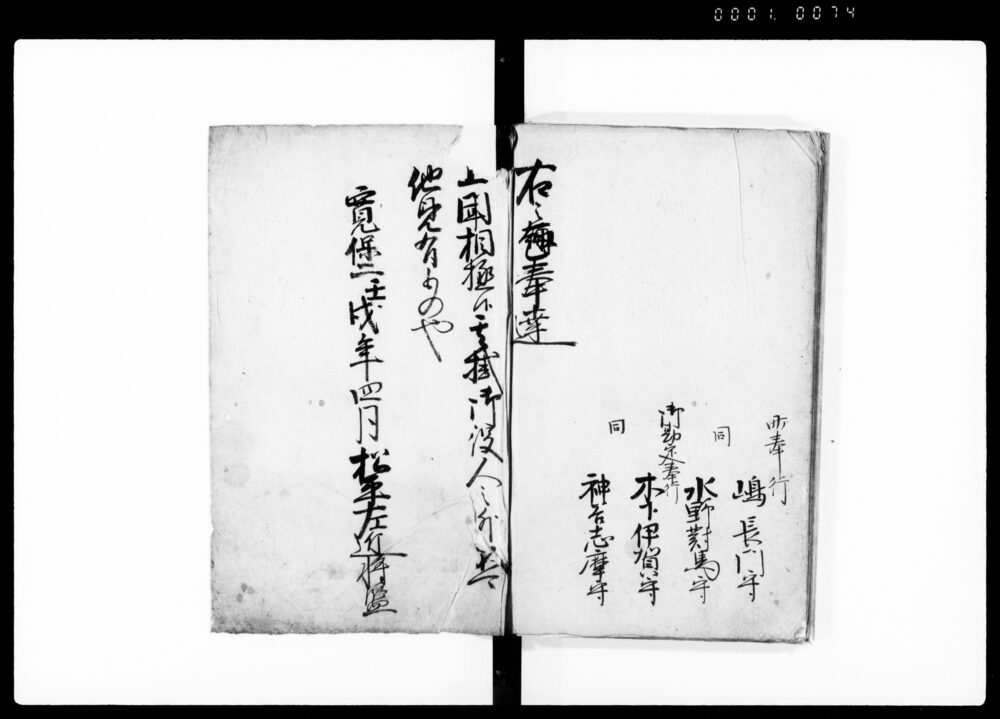 町奉行
嶋長門守
同
水野對馬守
御勘定奉行
木下伊賀守
同
神谷志摩守
右之趣奉達
上聞相極候 掛御役人之外
他見有ものや
寛保二壬戌年四月 松平左近将監